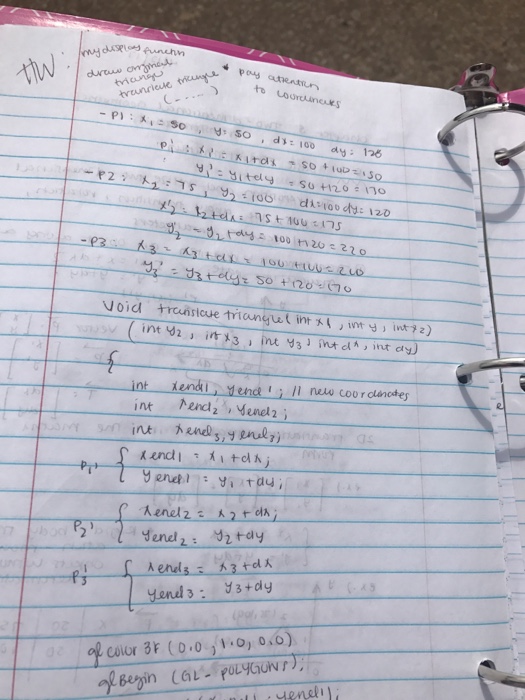 HW:
my display function
draw original
triangle * pay attention
translate triangle to coordinates
(.....)
- P1: x1 = 50 y: 50, dx = 100 dy: 120
P1': x1' = x1 + dx = 50 + 100 = 150
y1' = y1 + dy = 50 + 120 = 170
- P2: x2 = 75, y2 = 100 dx = 100 dy = 120
x2' = x2 + dx = 75 + 100 = 175
y2' = y2 + dy = 100 + 120 = 220
- P3: x3' = x3 + dx = 100 + 100 = 200
y3' = y3 + dy = 50 + 120 = 170
Void translate triangle (int x1, int y, int x2)
(int y2, int x3, int y3, int dx, int dy)
{
int xend1, yend1; // new coordinates
int xend2, yend2;
int xend3, yend3;
P1' { xend1 = x1 + dx;
yend1 = y1 + dy;
P2' { xend2 = x2 + dx;
yend2 = y2 + dy
P3' { xend3 = x3 + dx
yend3 = y3 + dy
gl color 3f (0.0, 1.0, 0.0)
gl Begin (GL - POLYGONS);
yend1);